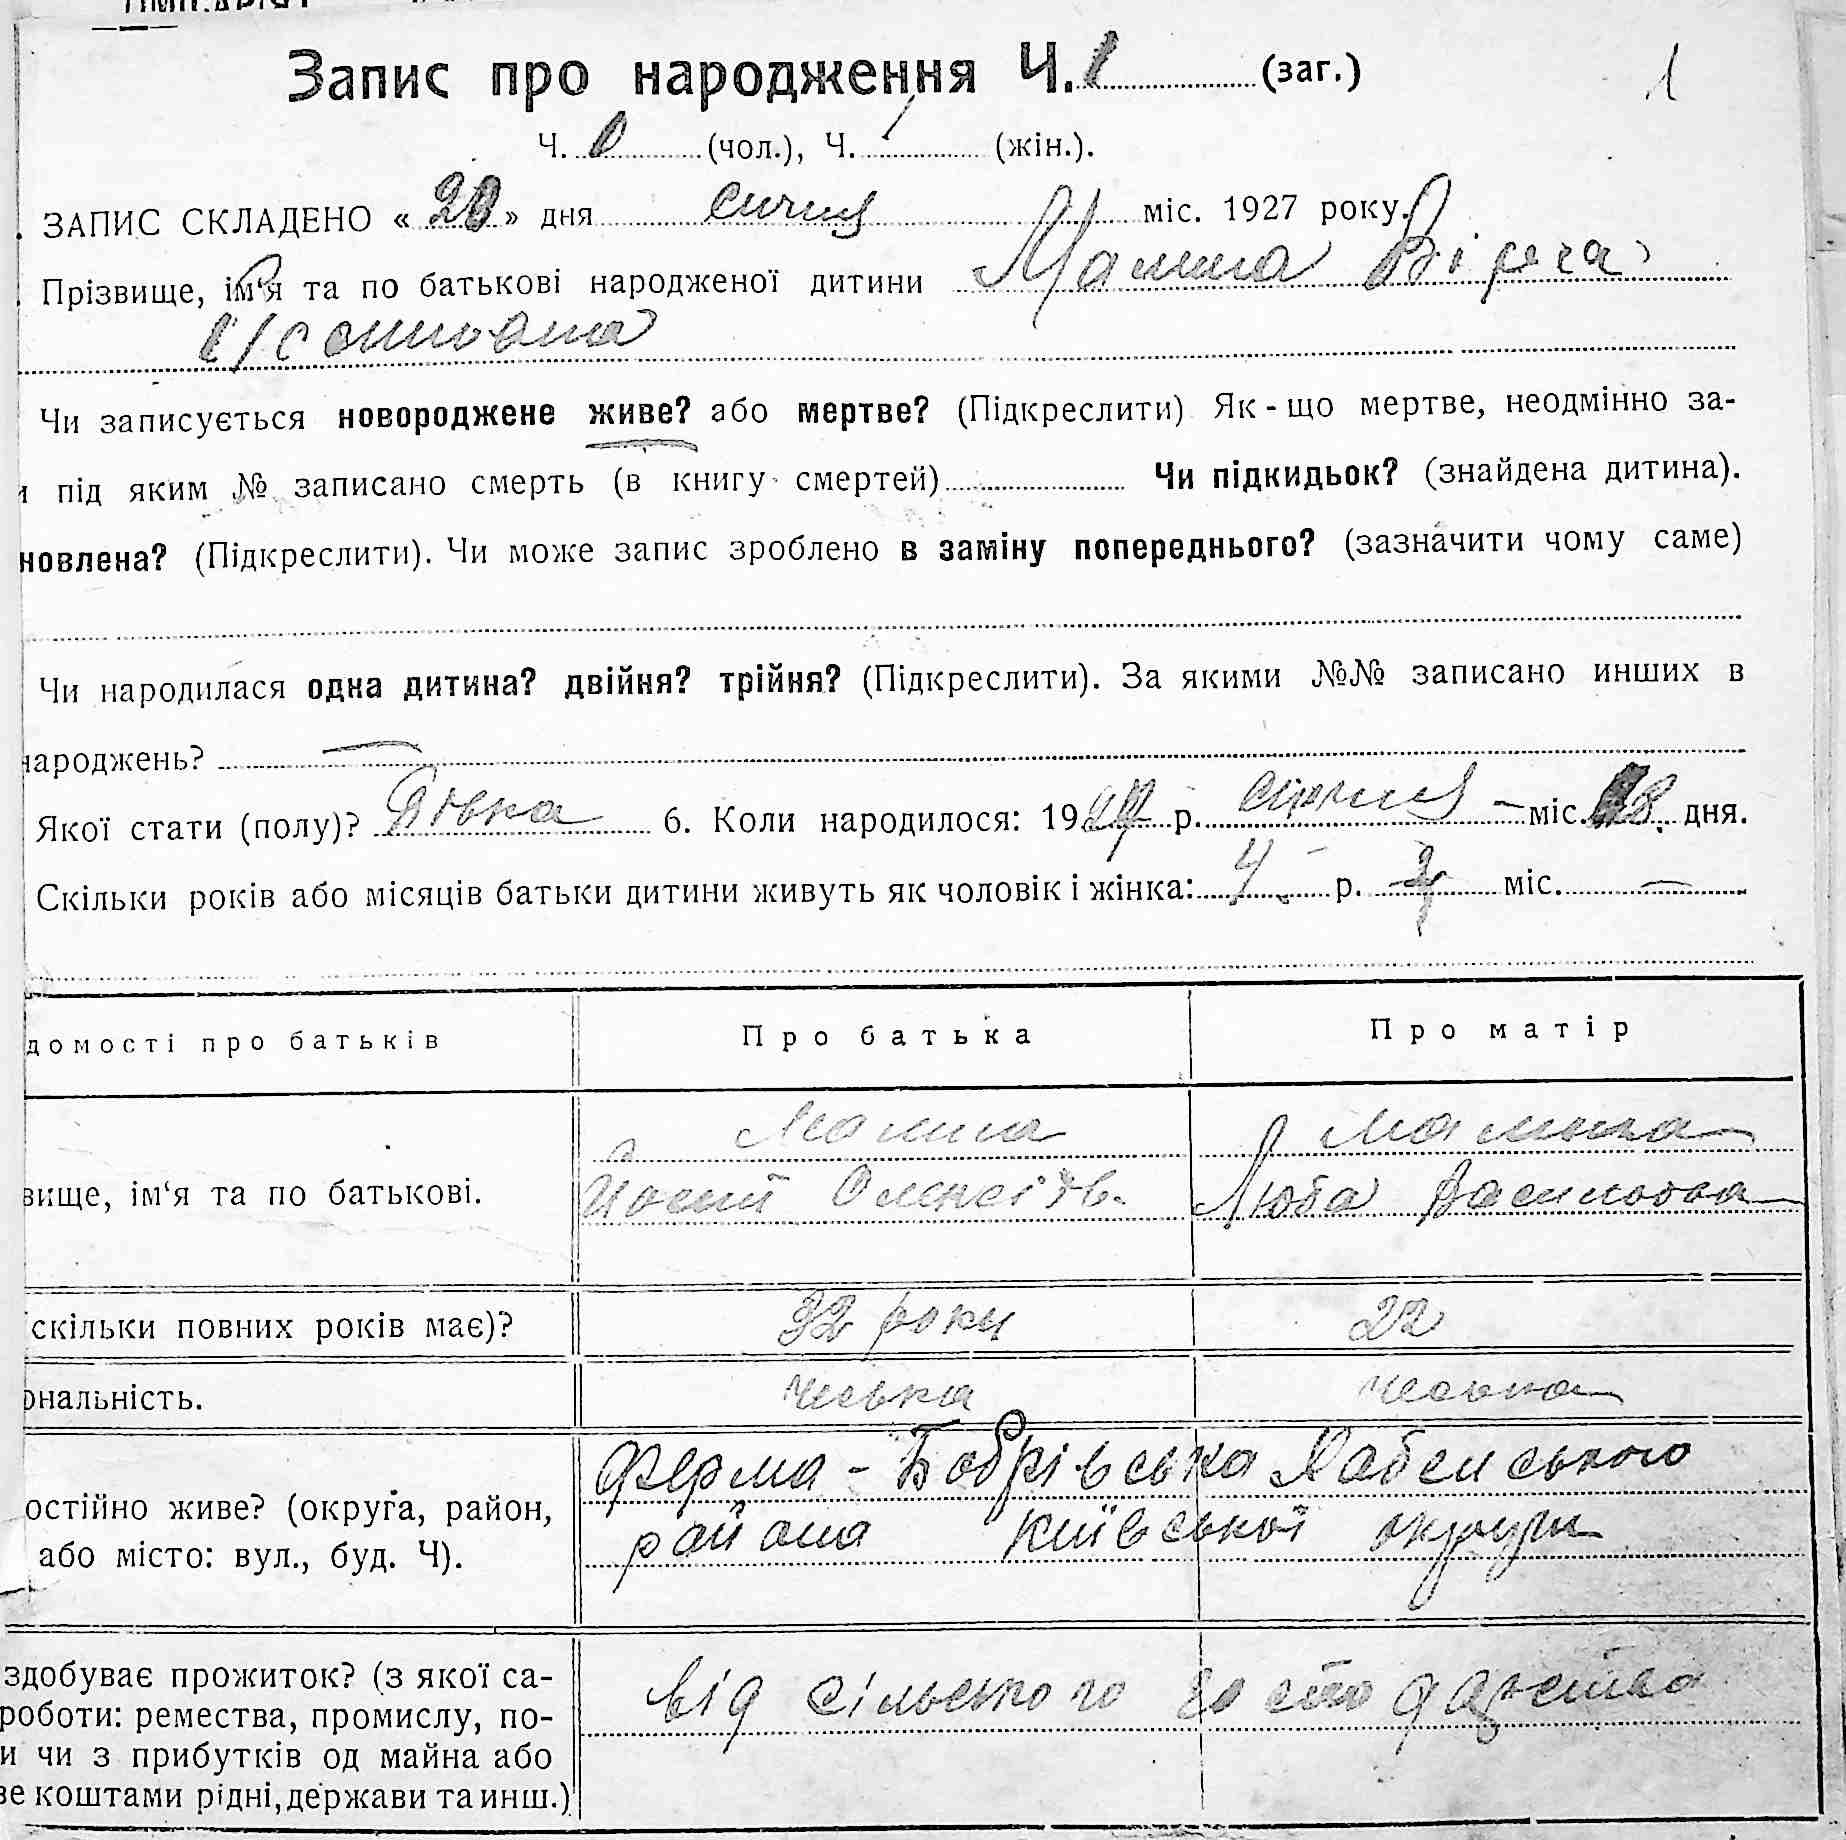 Запис про народження Ч. 1 (заг.) 1
Ч. (чол.), Ч. 1 (жін.).
ЗАПИС СКЛАДЕНО « 20 » дня січня міс. 1927 року.
Прізвище, ім'я та по батькові народженої дитини Малина Вірга
Йосипівна
Чи записується новороджене живе? або мертве? (Підкреслити) Як-що мертве, неодмінно за-
и під яким № записано смерть (в книгу смертей) Чи підкидьок? (знайдена дитина).
новлена? (Підкреслити). Чи може запис зроблено в заміну попереднього? (зазначити чому саме)
Чи народилася одна дитина? двійня? трійня? (Підкреслити). За якими №№ записано инших в
народжень? —
Якої стати (полу)? Дівка 6. Коли народилося: 1927 р. січня – міс. 18. дня.
Скільки років або місяців батьки дитини живуть як чоловік і жінка: 4 р. міс. —
домості про батьків Про батька Про матір
Малина Малина
вище, ім'я та по батькові. Йосип Олексіїв. Люба Василівна
скільки повних років має)? 32 роки 22
ональність. чеська чеська
Ферма - Бобрівська Хабенського
остійно живе? (округа, район, района Київської округи
або місто: вул., буд. Ч).
здобуває прожиток? (з якої са- від сільського господарства
роботи: ремества, промислу, по-
и чи з прибутків од майна або
ве коштами рідні, держави та инш.)